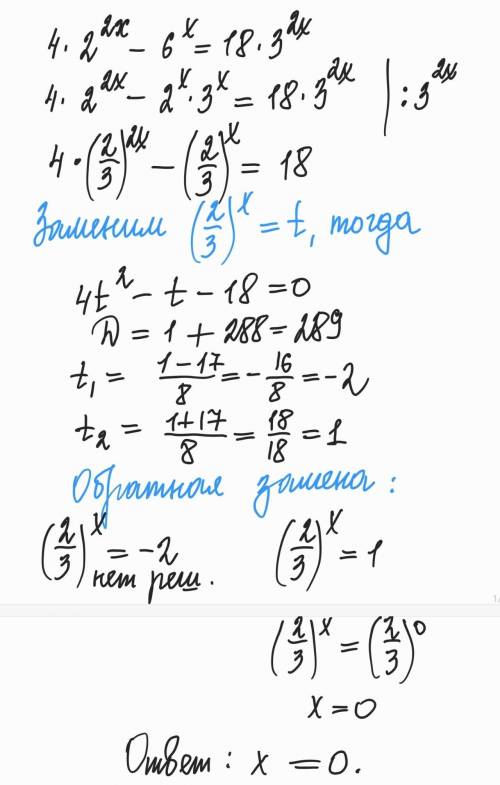 4 · 2^{2x} - 6^x = 18 · 3^{2x}
4 · 2^{2x} - 2^x · 3^x = 18 · 3^{2x} | : 3^{2x}
4 · (2/3)^{2x} - (2/3)^x = 18
Заменим (2/3)^x = t, тогда
4t^2 - t - 18 = 0
D = 1 + 288 = 289
t_1 = (1-17)/8 = -16/8 = -2
t_2 = (1+17)/8 = 18/18 = 1
Обратная замена:
(2/3)^x = -2 (2/3)^x = 1
нет реш.
(2/3)^x = (2/3)^0
x = 0
Ответ: x = 0.